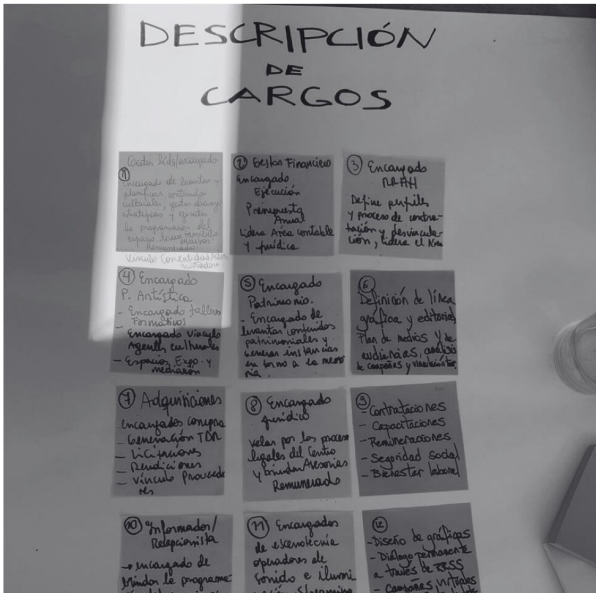 DESCRIPCIÓN
DE
CARGOS
①
Encargado de levantar y
planificar contenido
culturales,
la programación del
②Gestor Financiero
Encargado
Ejecución
Presupuesto
Anual
Lidera Area contable
y jurídica
③ Encargado
RRHH
Define perfiles
y proceso de contra-
tación y desvincula-
ción, lidera el
④ Encargado
P. Artística
- Encargado talleres
Formativos
Encargado vínculo
Agentes culturales
- Espacios Expo. y
mediación
⑤ Encargado
Patrimonio.
- Encargado de
levantar contenidos
patrimoniales y
generar instancias
en torno a la memo
ria
⑥
Definición de línea
gráfica y editorial
Plan de medios y de
audiencias, análisis
de campañas y
⑦ Adquisiciones
encargados compra
- Generación TDR
- Licitaciones
- Rendiciones
- Vínculo Proveedo
res
⑧ Encargado
jurídico
velar por los proceso
legales del Centro
y brindar Asesorias
Remunerado
⑨
- Contrataciones
- Capacitaciones
- Remuneraciones
- Seguridad Social
- Bienestar laboral
⑩ Informador/
Recepcionista
→ encargado de
el programa
⑪ Encargados
de escenotecnia
operadores de
Sonido e ilumi
⑫
- Diseño de gráficas
- Dialogo permanente
a través de RRSS
- Campañas virtuales